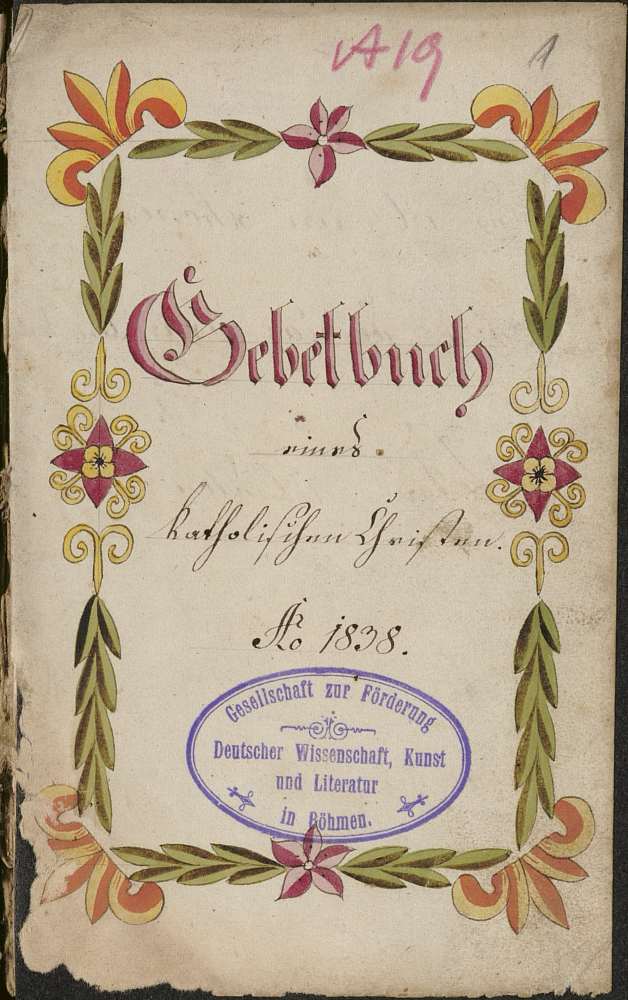 A19
1
Gebetbuch
eines
katholischen Christen.
Ao 1838.
Gesellschaft zur Förderung
Deutscher Wissenschaft, Kunst
und Literatur
in Böhmen.